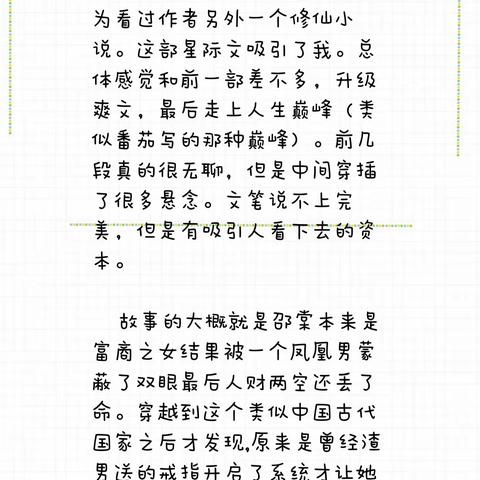 为看过作者另外一个修仙小
说。这部星际文吸引了我。总
体感觉和前一部差不多，升级
爽文，最后走上人生巅峰（类
似番茄写的那种巅峰）。前几
段真的很无聊，但是中间穿插
了很多悬念。文笔说不上完
美，但是有吸引人看下去的资
本。
故事的大概就是邵棠本来是
富商之女结果被一个凤凰男蒙
蔽了双眼最后人财两空还丢了
命。穿越到这个类似中国古代
国家之后才发现,原来是曾经渣
男送的戒指开启了系统才让她